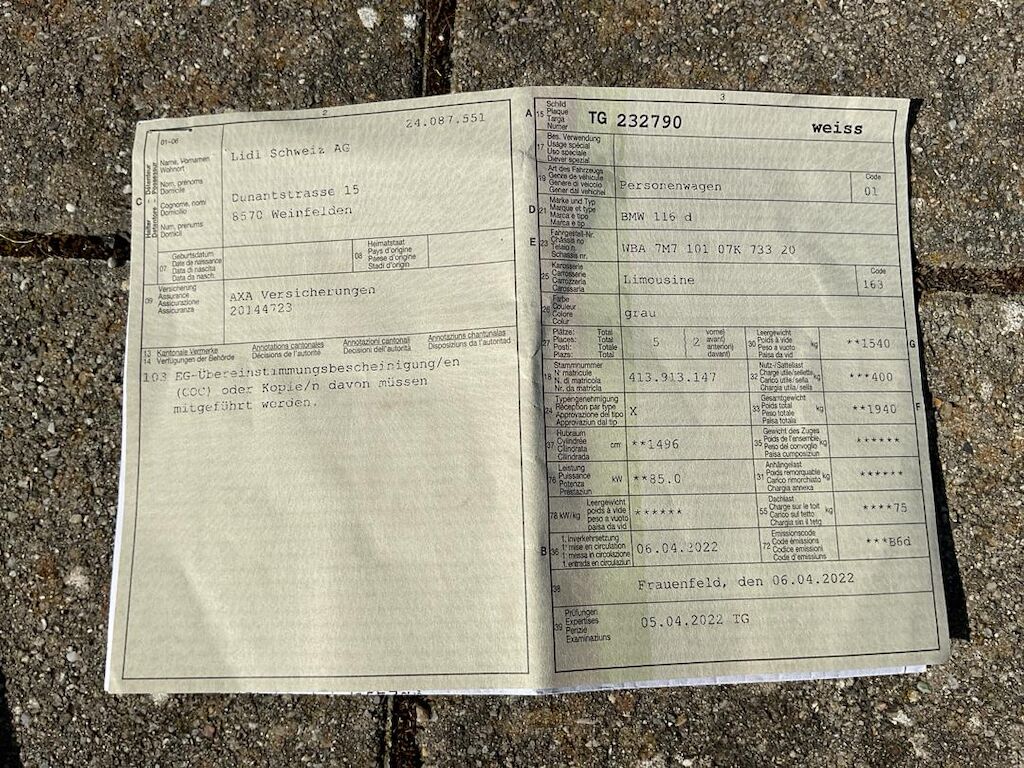 2
24.087.551
01-06
Name, Vornamen
Wohnort
Nom, prénoms
Domicile
Cognome, nomi
Domicilio
Num, prenums
Domicil
C
Halter – Détenteur
Detentore – Possessur
Lidl Schweiz AG
Dunantstrasse 15
8570 Weinfelden
07
Geburtsdatum
Date de naissance
Data di nascita
Data da nasch.
08
Heimatstaat
Pays d'origine
Paese d'origine
Stadi d'origin
09
Versicherung
Assurance
Assicurazione
Assicuranza
AXA Versicherungen
20144723
13 Kantonale Vermerke
14 Verfügungen der Behörde
Annotations cantonales
Décisions de l'autorité
Annotazioni cantonali
Decisioni dell'autorità
Annotaziuns chantunalas
Disposiziuns da l'autoritad
103 EG-Übereinstimmungsbescheinigung/en
(COC) oder Kopie/n davon müssen
mitgeführt werden.
3
A 15
Schild
Plaque
Targa
Numer
TG 232790
weiss
17
Bes. Verwendung
Usage spécial
Uso speciale
Diever spezial
19
Art des Fahrzeugs
Genre de véhicule
Genere di veicolo
Gener dal vehichel
Personenwagen
Code
01
D 21
Marke und Typ
Marque et type
Marca e tipo
Marca e tip
BMW 116 d
E 23
Fahrgestell-Nr.
Châssis no
Telaio n.
Schassis nr.
WBA 7M7 101 07K 733 20
25
Karosserie
Carrosserie
Carrozzeria
Carossaria
Limousine
Code
163
26
Farbe
Couleur
Colore
Colur
grau
27
Plätze: Total
Places: Total
Posti: Totale
Plazs: Total
5
2
vorne)
avant)
anteriori)
davant)
30
Leergewicht
Poids à vide
Peso a vuoto
Paisa da vid
kg
**1540
G
18
Stammnummer
N° matricule
N. di matricola
Nr. da matricla
413.913.147
32
Nutz-/Sattellast
Charge utile/sellette
Carico utile/sella
Chargia utila/sella
kg
***400
24
Typengenehmigung
Réception par type
Approvazione del tipo
Approvaziun dal tip
X
33
Gesamtgewicht
Poids total
Peso totale
Paisa totala
kg
**1940
F
37
Hubraum
Cylindrée
Cilindrata
Cilindrada
cm³
**1496
35
Gewicht des Zuges
Poids de l'ensemble
Peso del convoglio
Paisa cumposiziun
kg
******
76
Leistung
Puissance
Potenza
Prestaziun
kW
**85.0
31
Anhängelast
Poids remorquable
Carico rimorchiato
Chargia annexa
kg
******
78 kW/kg
Leergewicht
poids à vide
peso a vuoto
paisa da vid
******
55
Dachlast
Charge sur le toit
Carico sul tetto
Chargia sin il tetg
kg
****75
B 36
1. Inverkehrsetzung
1re mise en circulation
1a messa in circolazione
1. entrada en circulaziun
06.04.2022
72
Emissionscode
Code émissions
Codice emissioni
Code d'emissiuns
***B6d
38
Frauenfeld, den 06.04.2022
39
Prüfungen
Expertises
Perizie
Examinaziuns
05.04.2022 TG